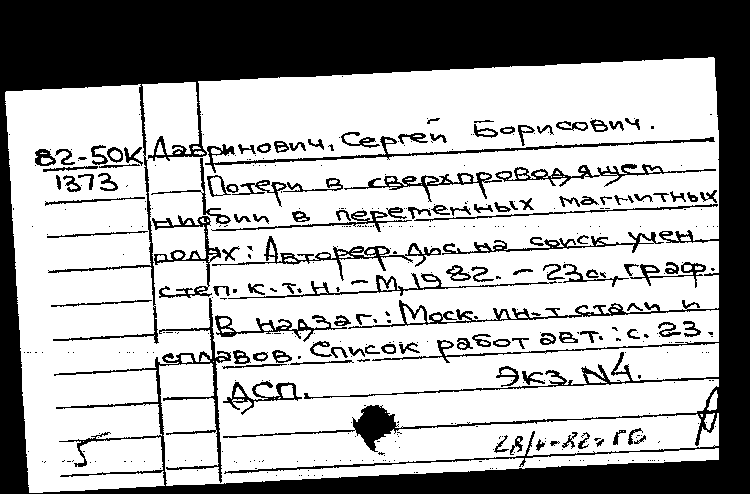 82-50К Лавринович, Сергей Борисович.
1373 Потери в сверхпроводящем
ниобии в переменных магнитных
полях: Автореф. дис. на соиск. учен.
степ. к.т.н. – М, 1982. – 23с., граф.
В надзаг.: Моск. ин-т стали и
сплавов. Список работ авт.: с. 23.
ДСП. Экз. N4.
5